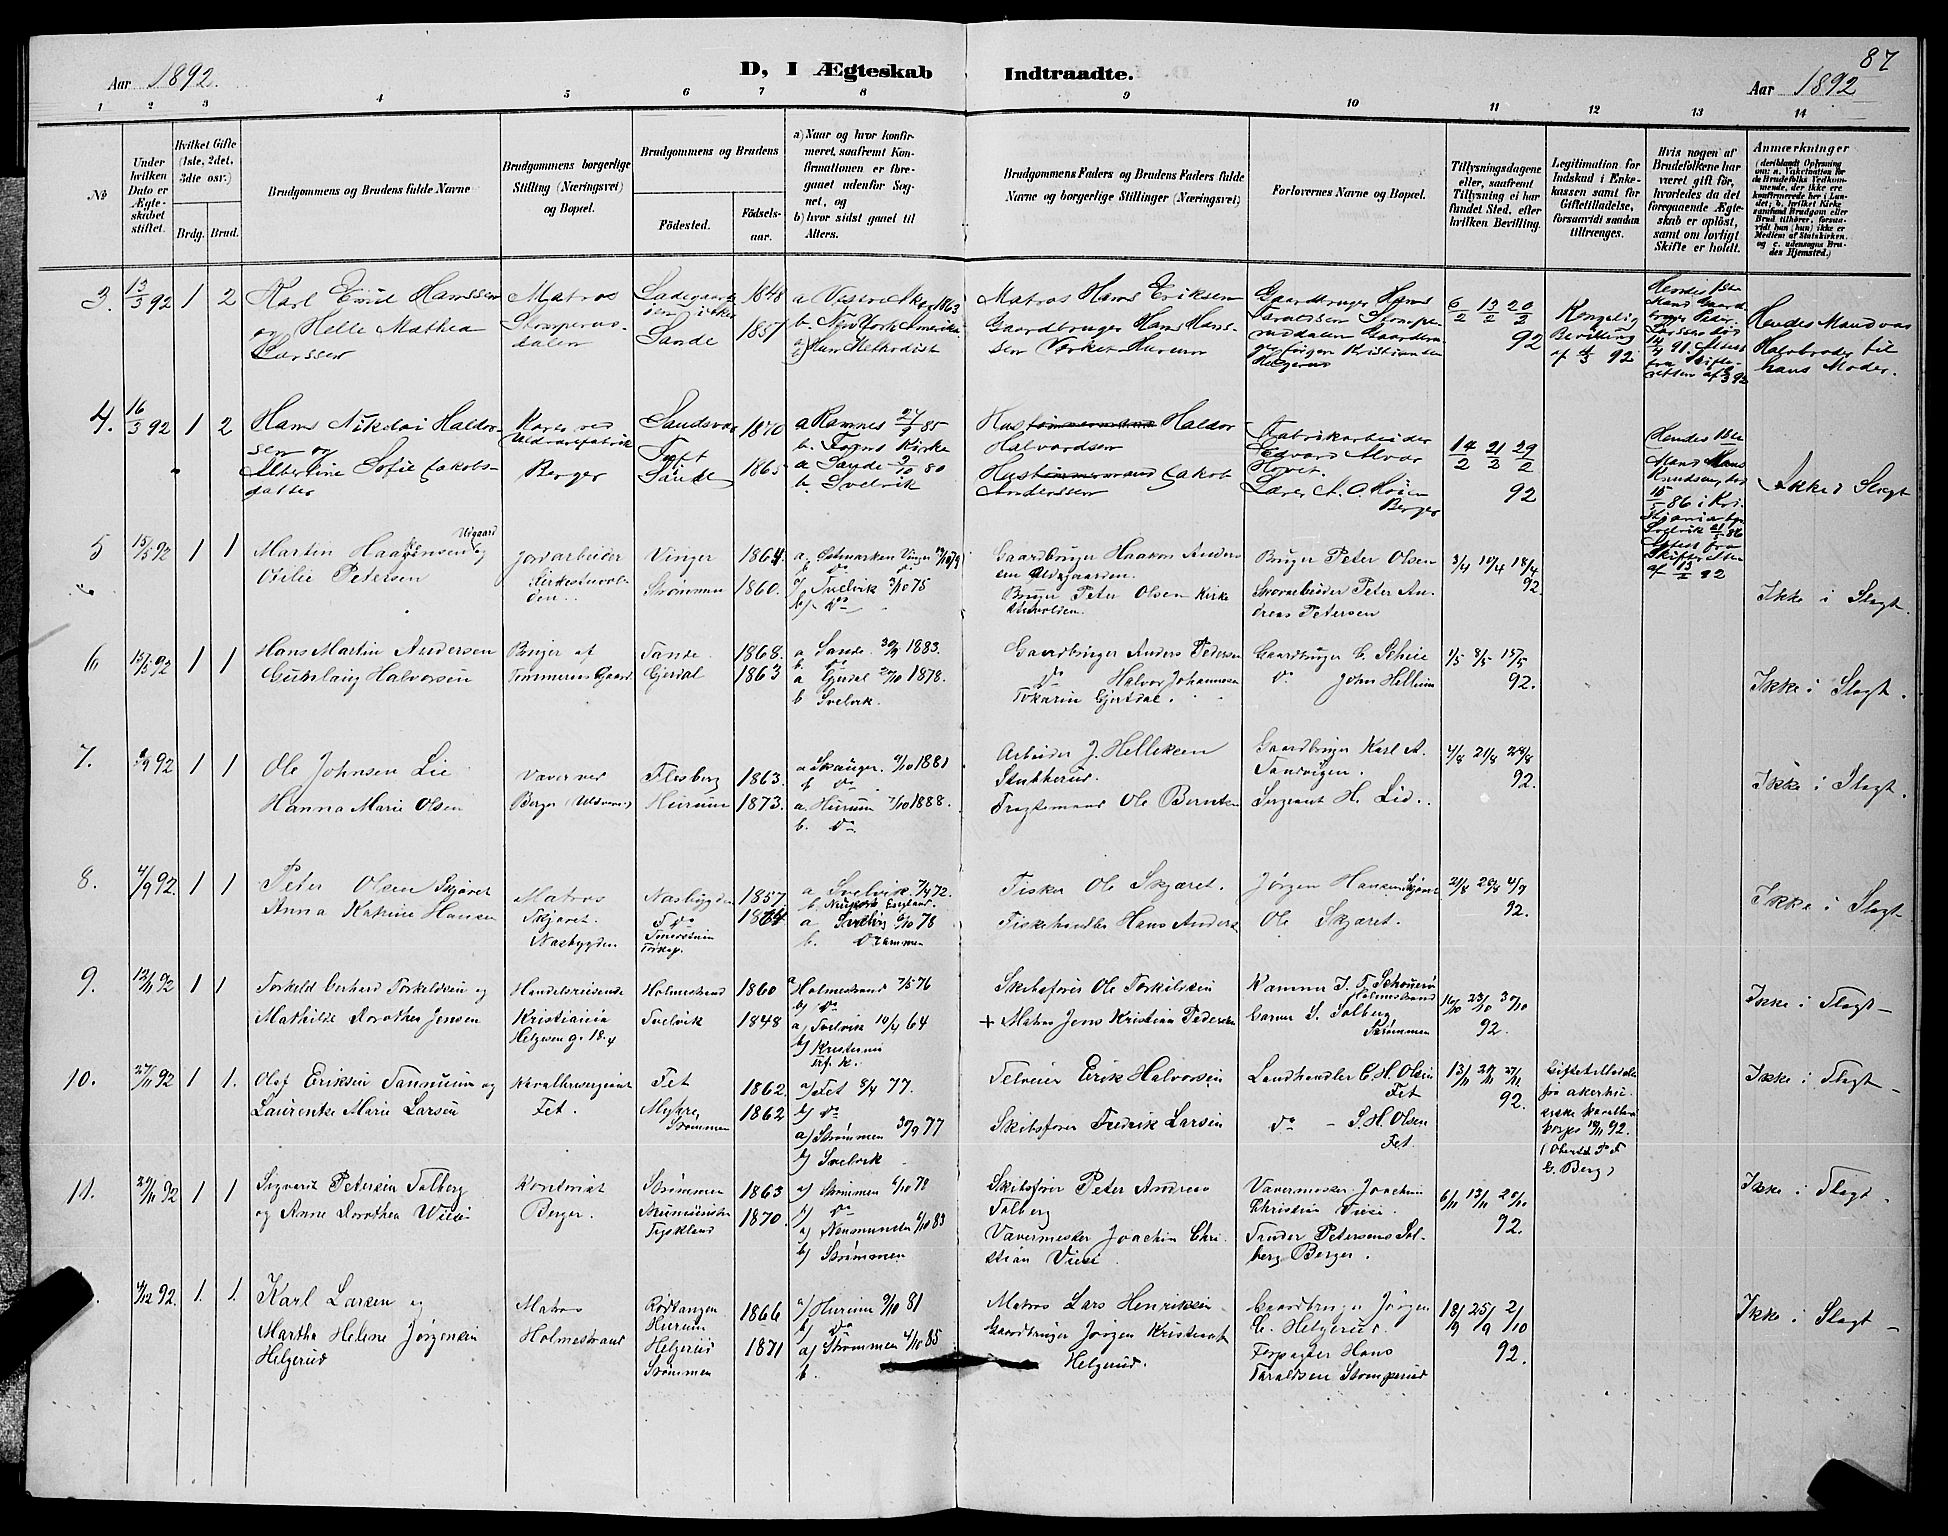 87
Aar 1892.
D, I Ægteskab Indtraadte.
Aar 1892
1 2 3 4 5 6 7 8 9 10 11 12 13 14
No
Under hvilken Dato er Ægteskabet stiftet.
Hvilket Gifte (1ste, 2det, 3die osv.)
Brdg. Brud.
Brudgommens og Brudens fulde Navne
Brudgommens borgerlige Stilling (Næringsvei) og Bopæl.
Brudgommens og Brudens
Födested. Födselsaar.
a) Naar og hvor konfirmeret, saafremt Konfirmationen er foregaaet udenfor Sognet, og
b) hvor sidst gaaet til Alters.
Brudgommens Faders og Brudens Faders fulde Navne og borgerlige Stillinger (Næringsvei)
Forlovernes Navne og Bopæl.
Tillysningsdagene eller, saafremt Tillysning ei har fundet Sted, efter hvilken Bevilling.
Legitimation for Indskud i Enkekassen samt for Giftetilladelse, forsaavidt saadan tiltrænges.
Hvis nogen af Brudefolkene har været gift før, hvorledes da det foregaaende Ægteskab er oplöst, samt om lovligt Skifte er holdt.
Anmærkninger
(deriblandt Oplysning om: a. Vakcination for de Brudefolks Vedkommende, der ikke ere konfirmerede her i Landet; b. hvilket Kirkesamfund Brudgom eller Brud tilhörer, forsaavidt han (hun) ikke er Medlem af Statskirken, og c. udensogns Brudes Hjemsted.)
3. 13/3 92 1 2
Karl Emil Hanssen
og Helle Mathea
Larssen
Matros
Stomperuddalen
Sande
1848
1857
b. New York Amerika
Han Methodist
Matros Hans Eriksen
Gaardbruger Hans Hanssen Verket Hurum
Gaardbruger Hans
Taraldsen
Helgerud
6/2 12/2 20/2
92
Kongelig
Bevilling
af 4/3 92
Hendes 1ste
Mand Gaardbruger Peder
Larssen død
Hendes Mand var
Halvbroder til
hans Moder.
4. 16/3 92 1 2
Hans Nikolai Haldorsen og
Albertine Sofie Jakobsdatter
Karer ved
Uldvarefabrik
Berger
Sandsvær
Toft
Sande
1870
1865
a Ramnes 27/9 85
b. Fogns Kirke
a Sande 3/10 80
b. Svelvik
Haldor
Halvardsen
Jakob
Andersen
Fabrikarbeider
Edvard Alvar
Hovet.
Lærer A. O. Høien
Berger
14/2 21/2 29/2
92
Hendes 1ste
Mand Hans
Knudsen død
Ikke i Slægt
5 15/5 92 1 1
Martin Haagensen Utgaard og
Otilie Petersen
Jordarbeider
Vinger
Strømmen
1864
1860.
a, Østmarken Vinger
b do
a, Svelvik 3/10 75
b, do
Gaardbruger Haakon Andersen
Bruger Peter Olsen Kirke
Bruger Peter Olsen
Skovarbeider Peter Andreas Petersen
3/4 10/4 18/4
92.
Ikke i Slægt.
6 15/5 92 1 1
Hans Martin Andersen
Gunlaug Halvorsen
Bruger af
Tømmerås Gaard
Sande
Gjerdal
1868.
1863
a Sande 30/9 1883.
b do
a Gjerdal 20/10 1878.
b Svelvik.
Gaardbruger Anders Pedersen
do Halvor Johannesen
Gaardbruger C. Schie
do John Hellum
1/5 8/5 15/5
92.
Ikke i Slægt.
7. 4/9 92 1 1
Ole Johnsen Lie
Hanna Marie Olsen
Væver ved
Berger (Uldvare)
Flesberg
Hurum
1863.
1873.
a Skauger. 9/10 1881
b. do
a. Hurum 7/10 1888.
b. do
Arbeider J. Helleksen
Stubberud.
Fragtemand Ole Berntsen
Gaardbruger Karl A.
Sandvigen.
Sergeant H. Lie.
4/8 21/8 28/8
92.
Ikke i Slægt.
8. 4/9 92. 1 1
Peter Olsen Skjæret
Anna Katrine Hansen
Matros
Skjæret.
Næsbygden
Næsbygden
do
1857.
1864.
a, Svelvik 7/4 72.
b. England.
a. Svelvig 6/10 78
b. Drammen
Fisker Ole Skjæret.
Fiskehandler Hans Anders
Jørgen Hansen Skjæret
Ole Skjæret.
21/8 28/8 4/9
92.
Ikke i Slægt
9. 12/11 92 1 1
Torkeld Gerhard Torkeldsen og
Mathilde Dorothea Jensen
Handelsreisende
Kristiania
Helgesens g. 18.
Holmestrand
Svelvik
1860
1848
a Holmestrand 7/5 76
b, do
a, Svelvik 10/4 64
b,
Skibsfører Ole Torkilsen
+ Matros Jens Kristian Pedersen
Holmestrand
Garver S. Solberg
Strømmen
16/10 23/10 30/10
92.
Ikke i Slægt
10. 27/11 92 1 1.
Olaf Eriksen Tannum og
Laurentze Marie Larsen
Kavallerisergeant
Fet.
Fet
Myhre
Strømmen
1862.
1862
a, Fet 8/4 77.
b, do
a, Strømmen 30/9 77
b, Svelvik
Selveier Erik Halvorsen
Skibsfører Fredrik Larsen
Landhandler C. H. Olsen
Fet
do - S. H. Olsen
Fet.
13/11 20/11 27/11
92.
Giftetilladelse
fra akershusiske kavalleri
korps 19/11 92.
G. Berg)
Ikke i Slægt
11. 29/11 92 1 1
Sigvart Petersen Solberg
og Anne Dorothea Wiese
Kontorist
Berger.
Strømmen
Neumünster
Tyskland
1863
1870.
a, Strømmen 6/10 78
b, do
a, Neumünster 6/10 83
b, Strømmen
Skibsfører Peter Andreas
Solberg
Vævermester Joachim Christian Viese
Vævermester Joachim
Christian Viese.
Petersens Solberg Berger.
6/11 13/11 20/11
92.
Ikke i Slægt.
4/12 92. 1. 1.
Karl Larsen og
Martha Helene Jørgensen
Helgerud
Matros
Holmestrand
Rødtangen
Hurum
Helgerud
Strømmen
1866
1871
a, Hurum 9/10 81
b, do
a, Strømmen 4/10 85
b.
Matros Lars Henriksen
Gaardbruger Jørgen Kristian
Helgerud.
Gaardbruger Jørgen
C. Helgerud.
Forpagter Hans
Taraldsen Stomperud
18/9 25/9 2/10
92.
Ikke i Slægt